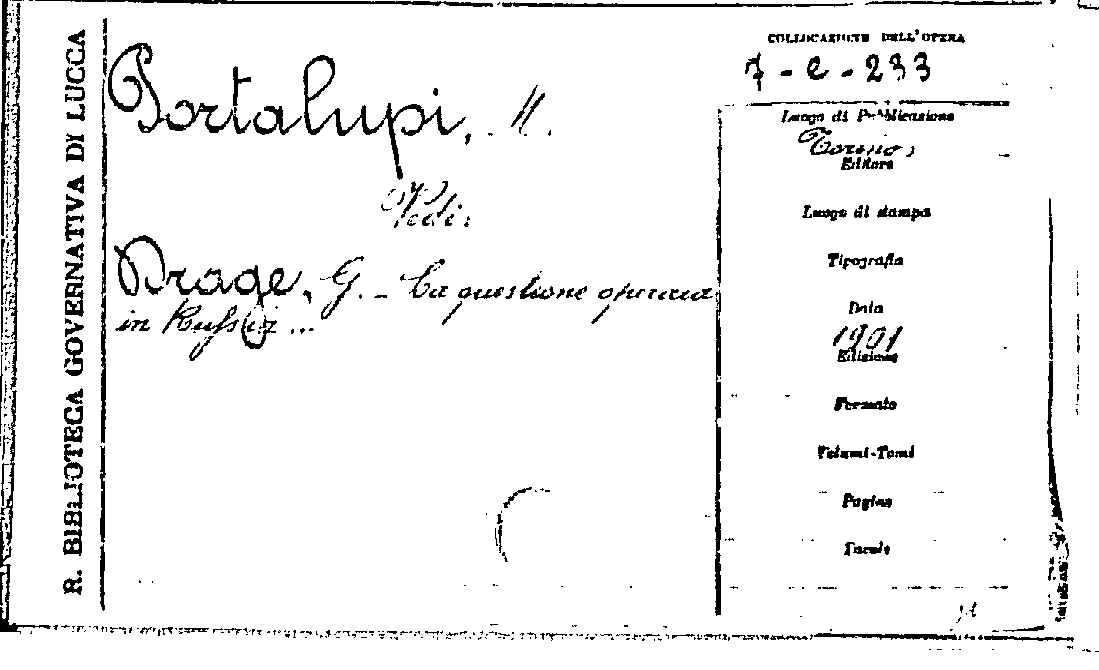 R. BIBLIOTECA GOVERNATIVA DI LUCCA
Portalupi, M.
Vedi:
Drage, G. - La questione operaia
in Russia ...
COLLOCAZIONE DELL'OPERA
7 - e - 233
Luogo di Pubblicazione
Torino
Editore
Luogo di stampa
Tipografia
Data
1901
Edizione
Formato
Volumi-Tomi
Pagine
Tavole